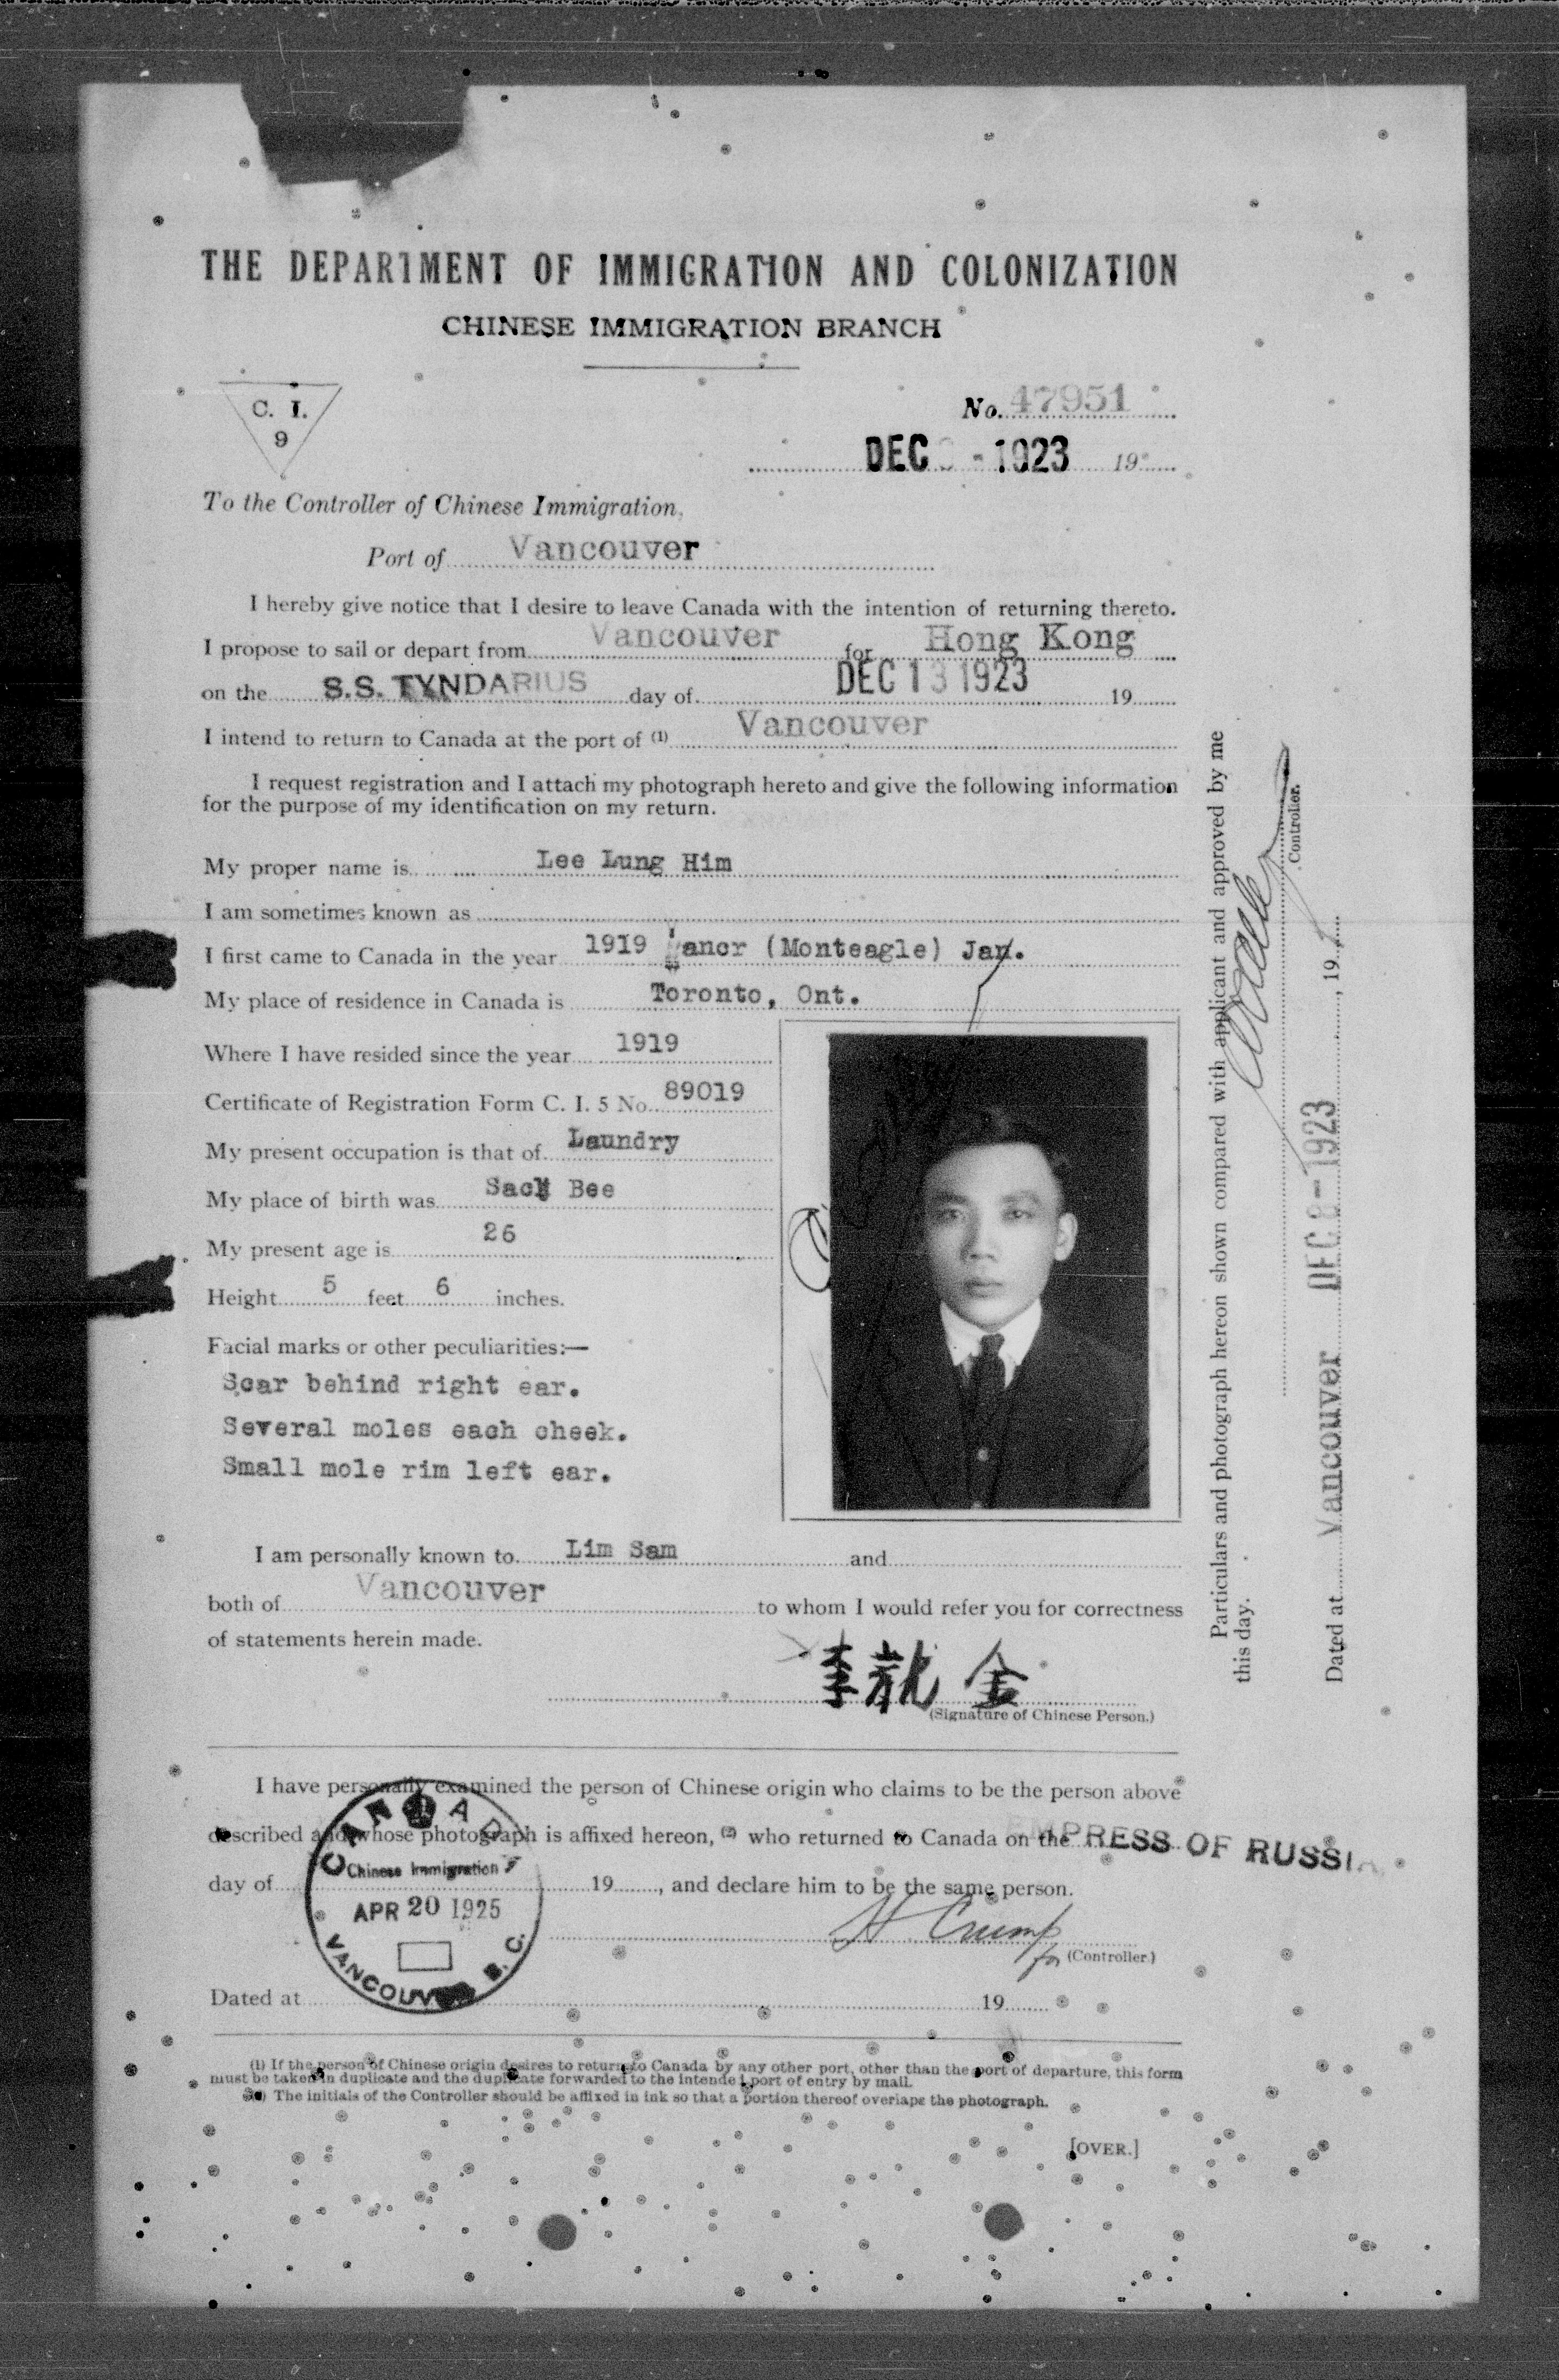 THE DEPARTMENT OF IMMIGRATION AND COLONIZATION
CHINESE IMMIGRATION BRANCH
C. I.
9
No. 47951
DEC - 1923 19
To the Controller of Chinese Immigration,
Port of Vancouver
I hereby give notice that I desire to leave Canada with the intention of returning thereto.
I propose to sail or depart from Vancouver for Hong Kong
on the S.S. TYNDARIUS day of DEC 13 1923 19
I intend to return to Canada at the port of (1) Vancouver
I request registration and I attach my photograph hereto and give the following information
for the purpose of my identification on my return.
My proper name is Lee Lung Him
I am sometimes known as
I first came to Canada in the year 1919 Vancr (Monteagle) Jan.
My place of residence in Canada is Toronto, Ont.
Where I have resided since the year 1919
Certificate of Registration Form C. I. 5 No. 89019
My present occupation is that of Laundry
My place of birth was Sack Bee
My present age is 26
Height 5 feet 6 inches.
Facial marks or other peculiarities:—
Scar behind right ear.
Several moles each cheek.
Small mole rim left ear.
I am personally known to Lim Sam and
both of Vancouver to whom I would refer you for correctness
of statements herein made.
李 金
(Signature of Chinese Person.)
I have personally examined the person of Chinese origin who claims to be the person above
described and whose photograph is affixed hereon, (2) who returned to Canada on the EMPRESS OF RUSSIA
day of 19 , and declare him to be the same person.
CANADA
Chinese Immigration
APR 20 1925
VANCOUVER B.C.
H Crump
for (Controller.)
Dated at 19
(1) If the person of Chinese origin desires to return to Canada by any other port, other than the port of departure, this form
must be taken in duplicate and the duplicate forwarded to the intended port of entry by mail.
(2) The initials of the Controller should be affixed in ink so that a portion thereof overlaps the photograph.
[OVER.]
Particulars and photograph hereon shown compared with applicant and approved by me
this day.
Controller.
Dated at Vancouver DEC 8 - 1923 , 19